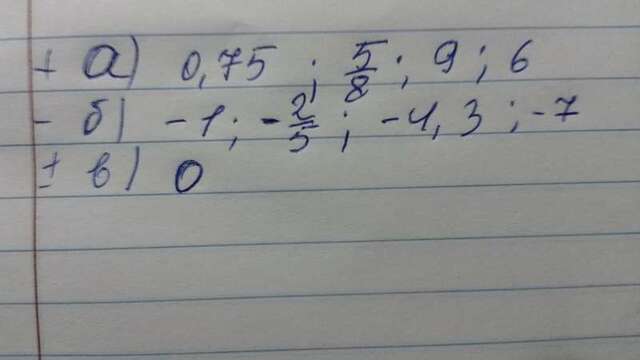 + а) 0,75 ; 5/8 ; 9 ; 6
- б) -1 ; -2/5 ; -4,3 ; -7
± в) 0